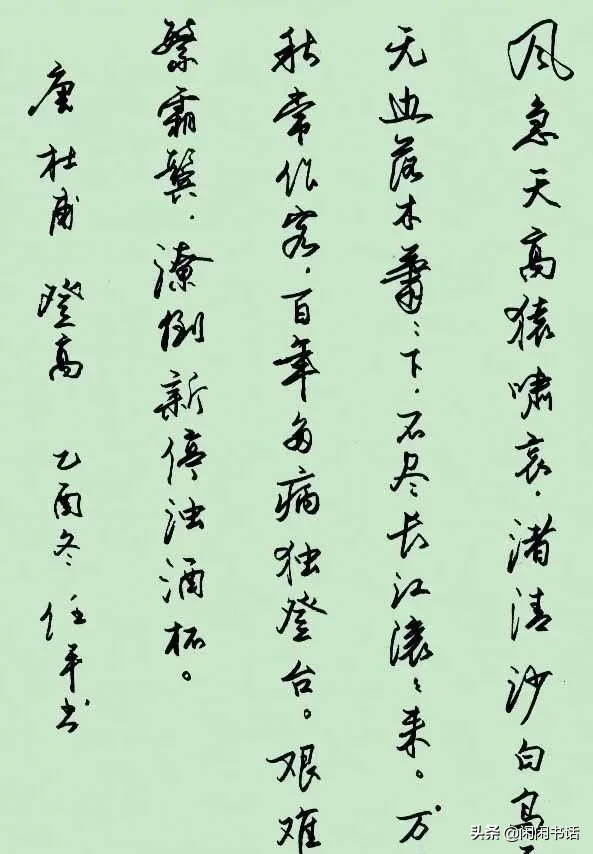 风急天高猿啸哀，渚清沙白鸟
无边落木萧〻下，不尽长江滚〻来。万
秋常作客，百年多病独登台。艰难
繁霜鬓，潦倒新停浊酒杯。
唐杜甫 登高 乙酉冬 任平书
头条 @闲闲书话